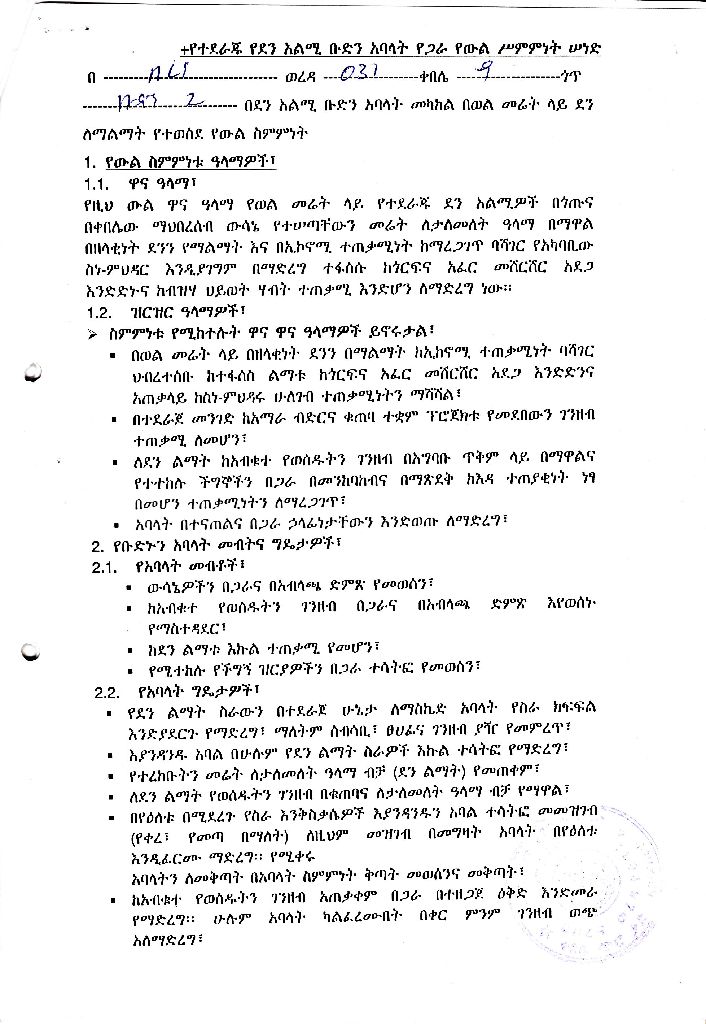 +የተደራጁ የደን አልሚ ቡድን አባላት የጋራ የውል ሥምምነት ሠነድ
በ ወረዳ 031 ቀበሌ 9 ጎጥ
2 በደን አልሚ ቡድን አባላት መካከል በወል መሬት ላይ ደን
ለማልማት የተወሰደ የውል ስምምነት
1. የውል ስምምነቱ ዓላማዎች፣
1.1. ዋና ዓላማ፣
የዚህ ውል ዋና ዓላማ የወል መሬት ላይ የተደራጁ ደን አልሚዎች በጎጡና
በቀበሌው ማህበረሰብ ውሳኔ የተሠጣቸውን መሬት ለታለመለት ዓላማ በማዋል
በዘላቂነት ደንን የማልማት እና በኢኮኖሚ ተጠቃሚነት ከማረጋገጥ ባሻገር የአካባቢው
ስነ-ምህዳር እንዲያገግም በማድረግ ተፋሰሱ ከጎርፍና አፈር መሸርሸር አደጋ
እንድድኑና ከብዝሃ ህይወት ሃብት ተጠቃሚ እንድሆን ለማድረግ ነው።
1.2. ዝርዝር ዓላማዎች፣
➢ ስምምነቱ የሚከተሉት ዋና ዋና ዓላማዎች ይኖሩታል፤
▪ በወል መሬት ላይ በዘላቂነት ደንን በማልማት ከኢኮኖሚ ተጠቃሚነት ባሻገር
ህብረተሰቡ ከተፋሰስ ልማቱ ከጎርፍና አፈር መሸርሸር አደጋ እንድድንና
አጠቃላይ ከስነ-ምህዳሩ ሁለገብ ተጠቃሚነትን ማሻሻል፣
▪ በተደራጀ መንገድ ከአማራ ብድርና ቁጠባ ተቋም ፕሮጀክቱ የመደበውን ገንዘብ
ተጠቃሚ ለመሆን፣
▪ ለደን ልማት ከአብቁተ የወሰዱትን ገንዘብ በአግባቡ ጥቅም ላይ በማዋልና
የተተከሉ ችግኞችን በጋራ በመንከባከብና በማጽደቅ ከእዳ ተጠያቂነት ነፃ
በመሆን ተጠቃሚነትን ለማረጋገጥ፣
▪ አባላት በተናጠልና በጋራ ኃላፊነታቸውን እንድወጡ ለማድረግ፣
2. የቡድኑን አባላት መብትና ግዴታዎች፣
2.1. የአባላት መብቶች፤
▪ ውሳኔዎችን በጋራና በአብላጫ ድምጽ የመወሰን፣
▪ ከአብቁተ የወሰዱትን ገንዘብ በጋራና በአብላጫ ድምጽ እየወሰኑ
የማስተዳደር፤
▪ ከደን ልማቱ እኩል ተጠቃሚ የመሆን፣
▪ የሚተከሉ የችግኝ ዝርያዎችን በጋራ ተሳትፎ የመወሰን፣
2.2. የአባላት ግዴታዎች፣
▪ የደን ልማት ስራውን በተደራጀ ሁኔታ ለማስኬድ አባላት የስራ ክፍፍል
እንድያደርጉ የማድረግ፤ ማለትም ሰብሳቢ፣ ፀሀፊና ገንዘብ ያዥ የመምረጥ፣
▪ እያንዳንዱ አባል በሁሉም የደን ልማት ስራዎች እኩል ተሳትፎ የማድረግ፣
▪ የተረከቡትን መሬት ለታለመለት ዓላማ ብቻ (ደን ልማት) የመጠቀም፣
▪ ለደን ልማት የወሰዱትን ገንዘብ በቁጠባና ለታለመለት ዓላማ ብቻ የማዋል፣
▪ በየዕለቱ በሚደረጉ የስራ እንቅስቃሴዎች እያንዳንዱን አባል ተሳትፎ መመዝገብ
(የቀረ፣ የመጣ በማለት) ለዚህም መዝገብ በመግዛት አባላት በየዕለቱ
እንዲፈርሙ ማድረግ። የሚቀሩ
አባላትን ለመቅጣት በአባላት ስምምነት ቅጣት መወሰንና መቅጣት፣
▪ ከአብቁተ የወሰዱትን ገንዘብ አጠቃቀም በጋራ በተዘጋጀ ዕቅድ እንድመራ
የማድረግ። ሁሉም አባላት ካልፈረሙበት በቀር ምንም ገንዘብ ወጭ
አለማድረግ፣